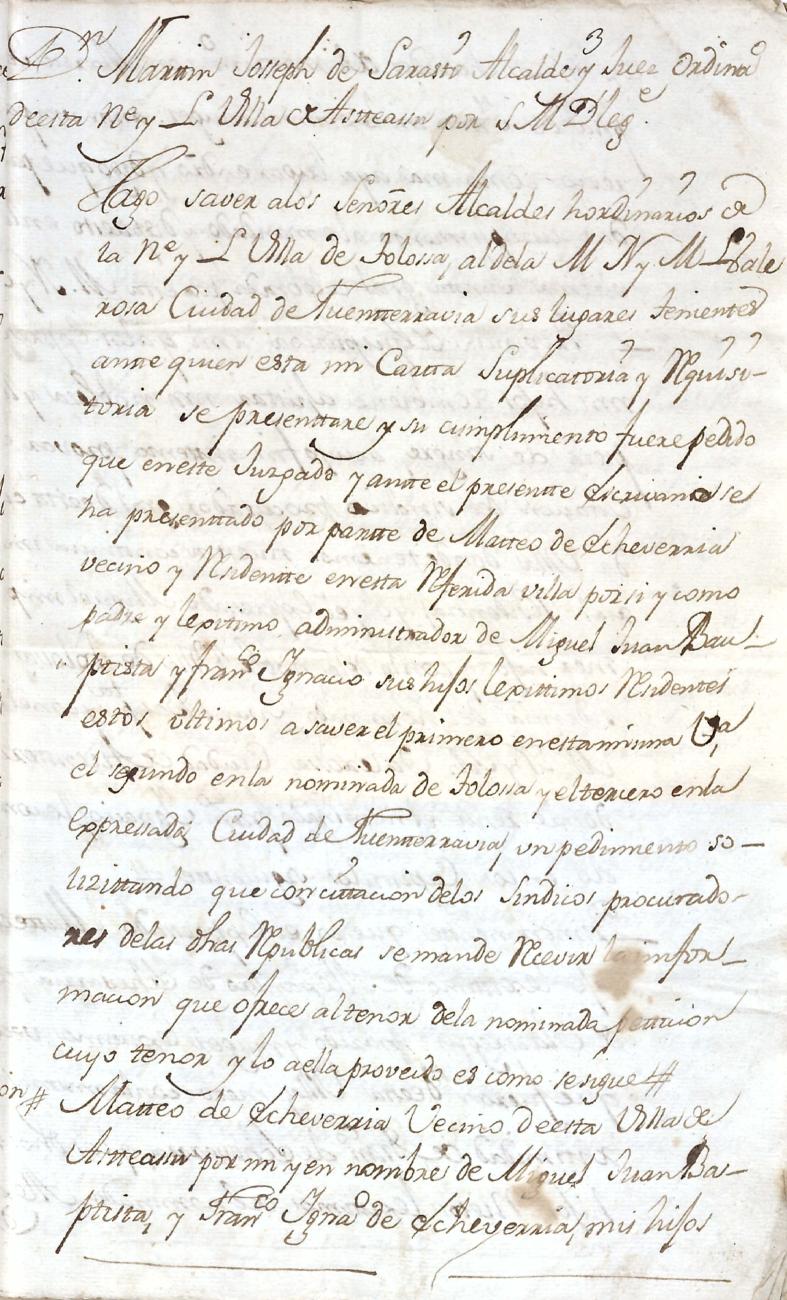 Dn. Marttin Josseph de Sarastti Alcalde y Juez ordinao
deesta Ne. y L Villa de Astteasu por S M Dlege.
Hago saver alos Señores Alcaldes hordinarios de
la Ne. y L Villa de Tolossa, aldela M N y M L Vale
rosa Ciudad de Fuentterravia sus lugares thenientes
antte quien esta mi Cartta Suplicatoria y Requisi-
toria se presenttare y su cumplimento fuere pedido
que en estte Juzgado y antte el presentte Escrivano se
ha presenttado por partte de Matteo de Echeverria
vecino y Residentte en estta Referida villa por si y como
padre y lexitimo administrador de Miguel Juan Bau-
ptista y Franco. Ygnacio sus hijos lexittimos Residentes
estos ultimos a saver el primero en esta misma Va.
el segundo enla nominada de Tolossa y el tercero enla
Expressada Ciudad de Fuentterravia, un pedimento so-
lizittando que con cittacion delos Sindicos procurado-
res delas dhas Republicas se mande Recevir la infor-
macion que ofrece al tenor dela nominada petticion
cuyo tenor y lo aella proveido es como se sigue #
on # Matteo de Echeverria Vecino deesta Villa de
Astteasu por mi y en nombre de Miguel Juan Ba-
ptista, y Franco Ygnao de Echeverria, mis hijos